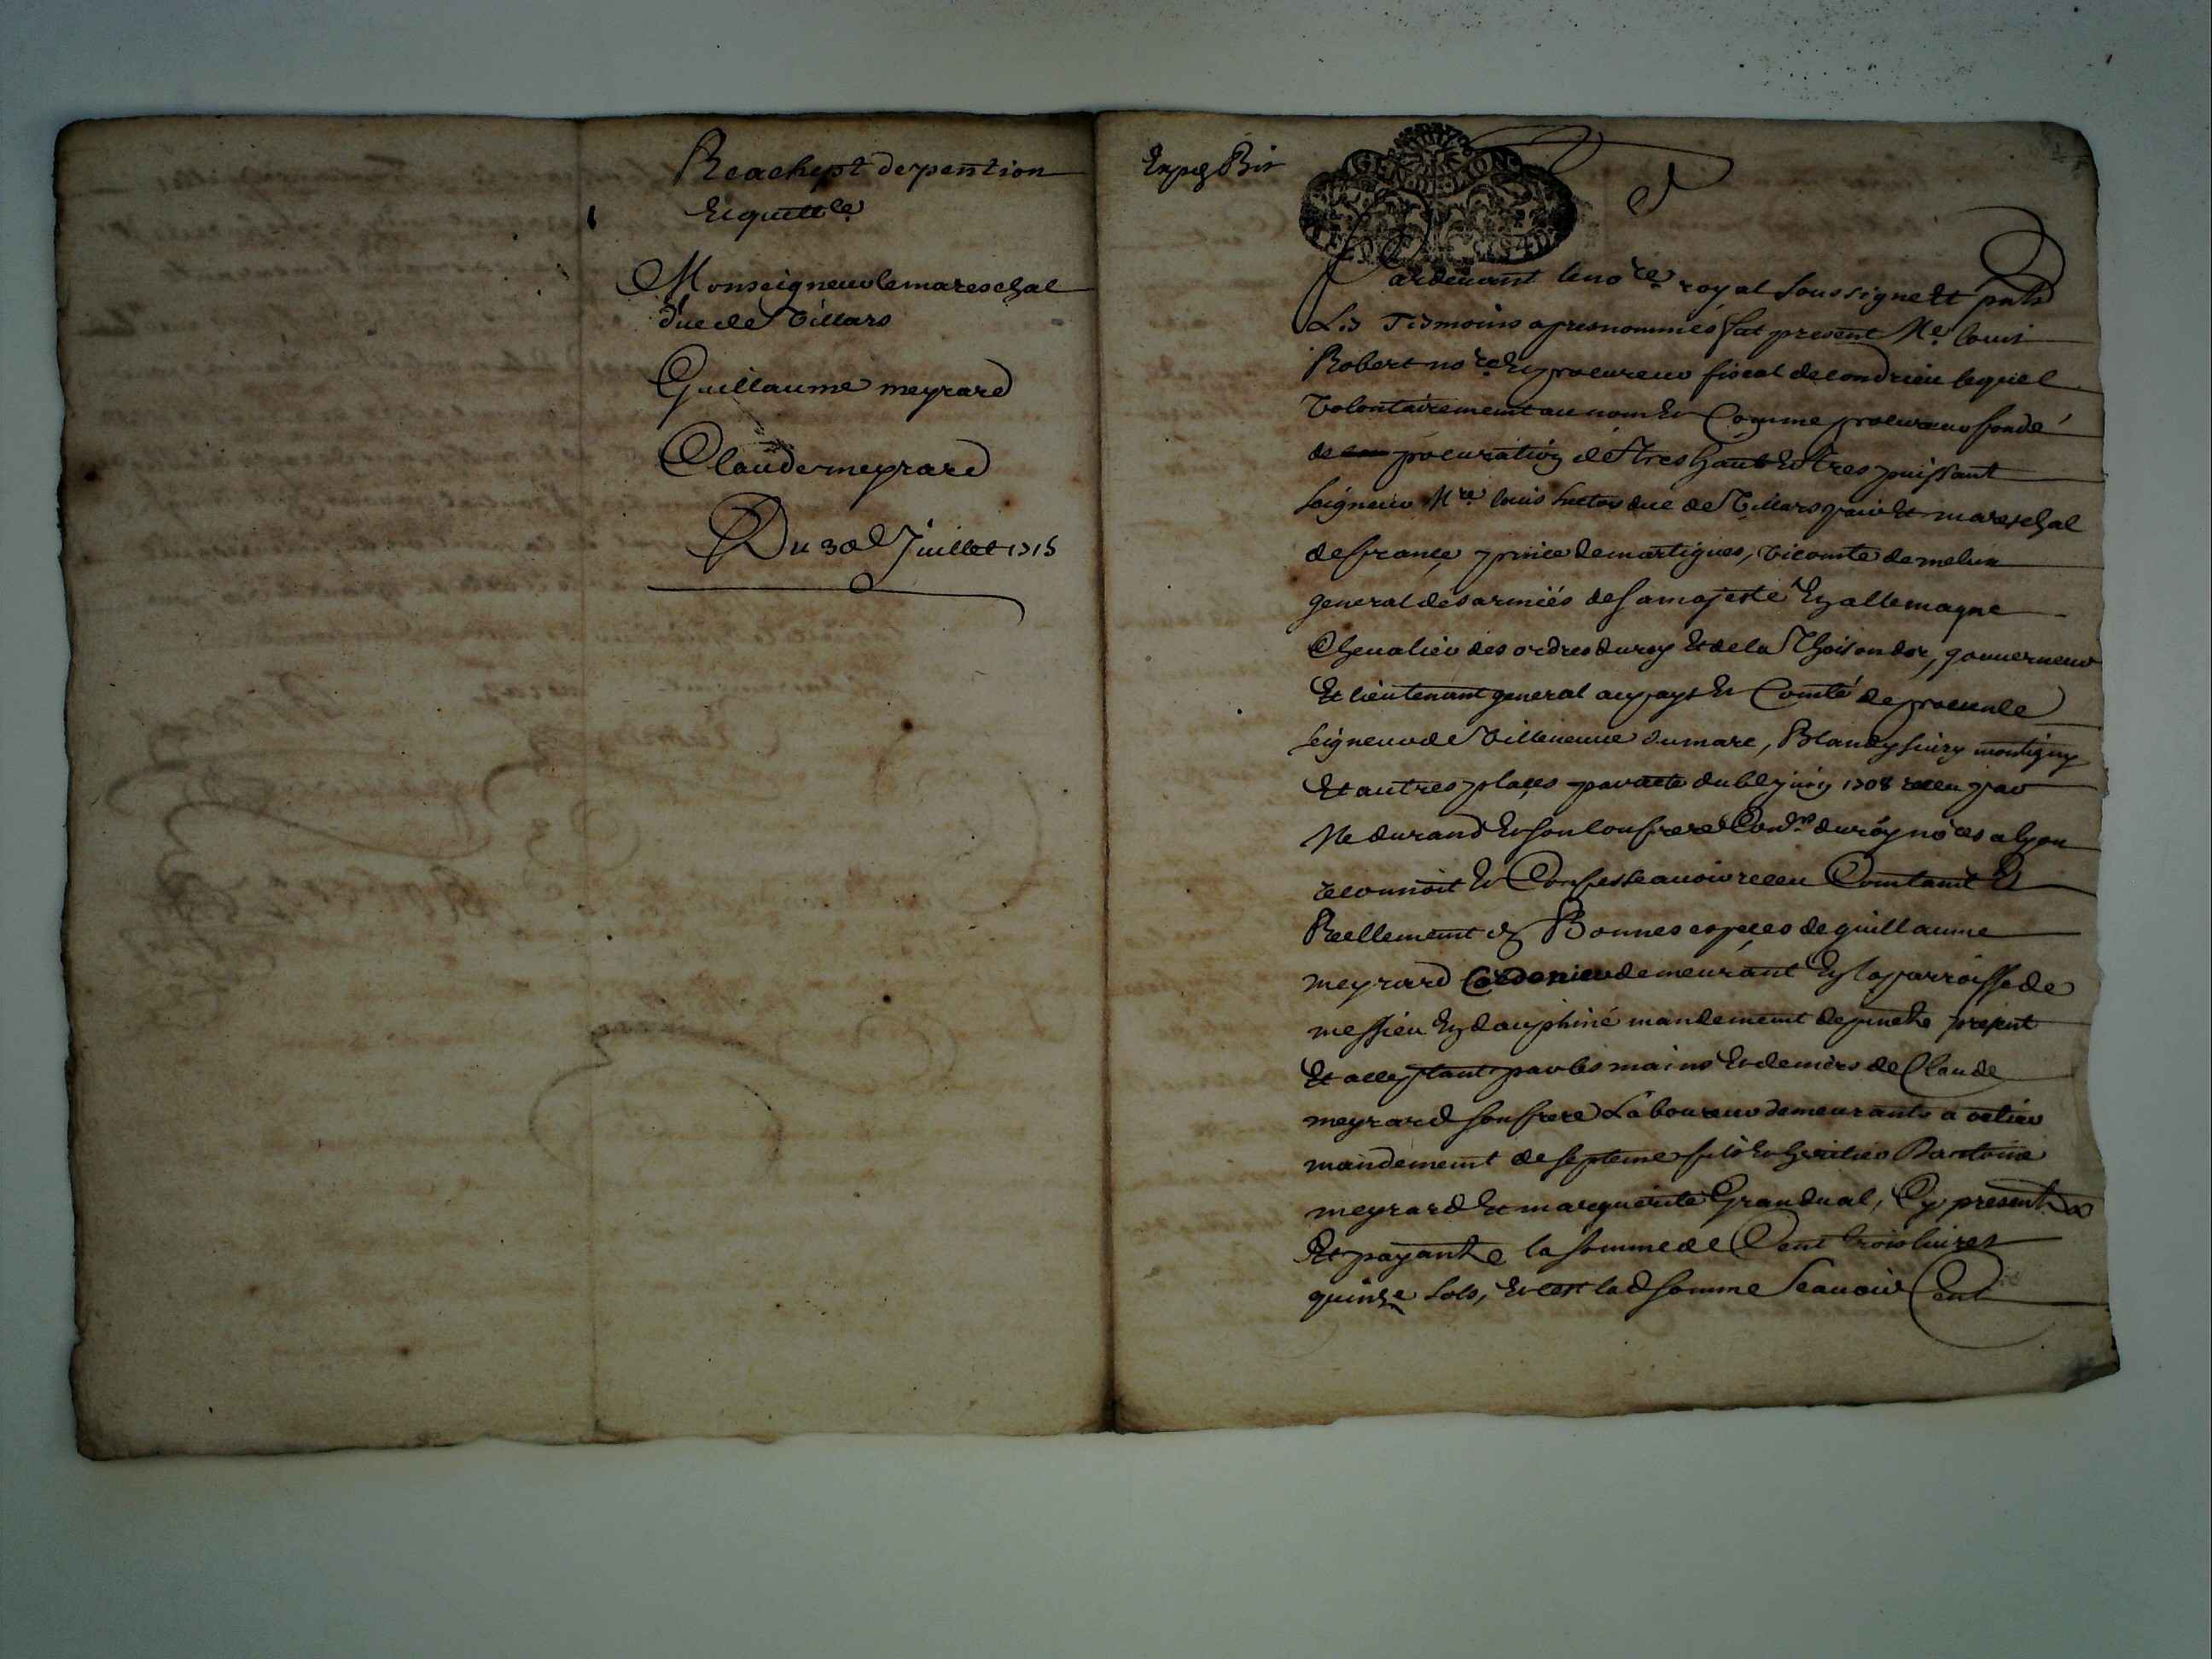 Reachept de pention
Et quittce
Monseigneur le mareschal
duc de Villars
Guillaume meyrard
Claude meyrard
Du 30e Juillet 1715
Expe Bis
Pardevant le nore royal soussigne et pnts
Les Tesmoins apres nommés fut present Me louis
Robert nore Et procureur fiscal de condrieu lequel
Volontairement au nom Et Comme procureur fondé
de procuration de tres haut Et tres puissant
seigneur Mre louis hector duc de Villars pair Et mareschal
de france, prince de martigues, vicomte de melun
general des armeés de sa majesté En allemagne
Chevalier des ordres du roy Et de la Thoison dor, gouverneur
Et lieutenant general au pays Et Comté de provence
seigneur de Villeneuve dumarc, Blandy sivry montigny
Et autres places par acte du juin 1708 receu par
Me durand Et son confrere Coners du roy nores a lyon
reconnoit Et Confesse avoir receu Comtant Et
Reellement En Bonnes espèces de guillaume
meyrard Cordonier demeurant En la parroisse de
messieu En dauphiné mandement de pinet present
Et acceptant par les mains Et deniers de Claude
meyrard son frere Laboureur demeurants a oetier
mandement de septeme fils Et heritier D'antoine
meyrard Et marguerite Grandval, Cy present
Et payant la somme de Cent trois livres
quinze sols, Et c'est lad somme scavoir Cent